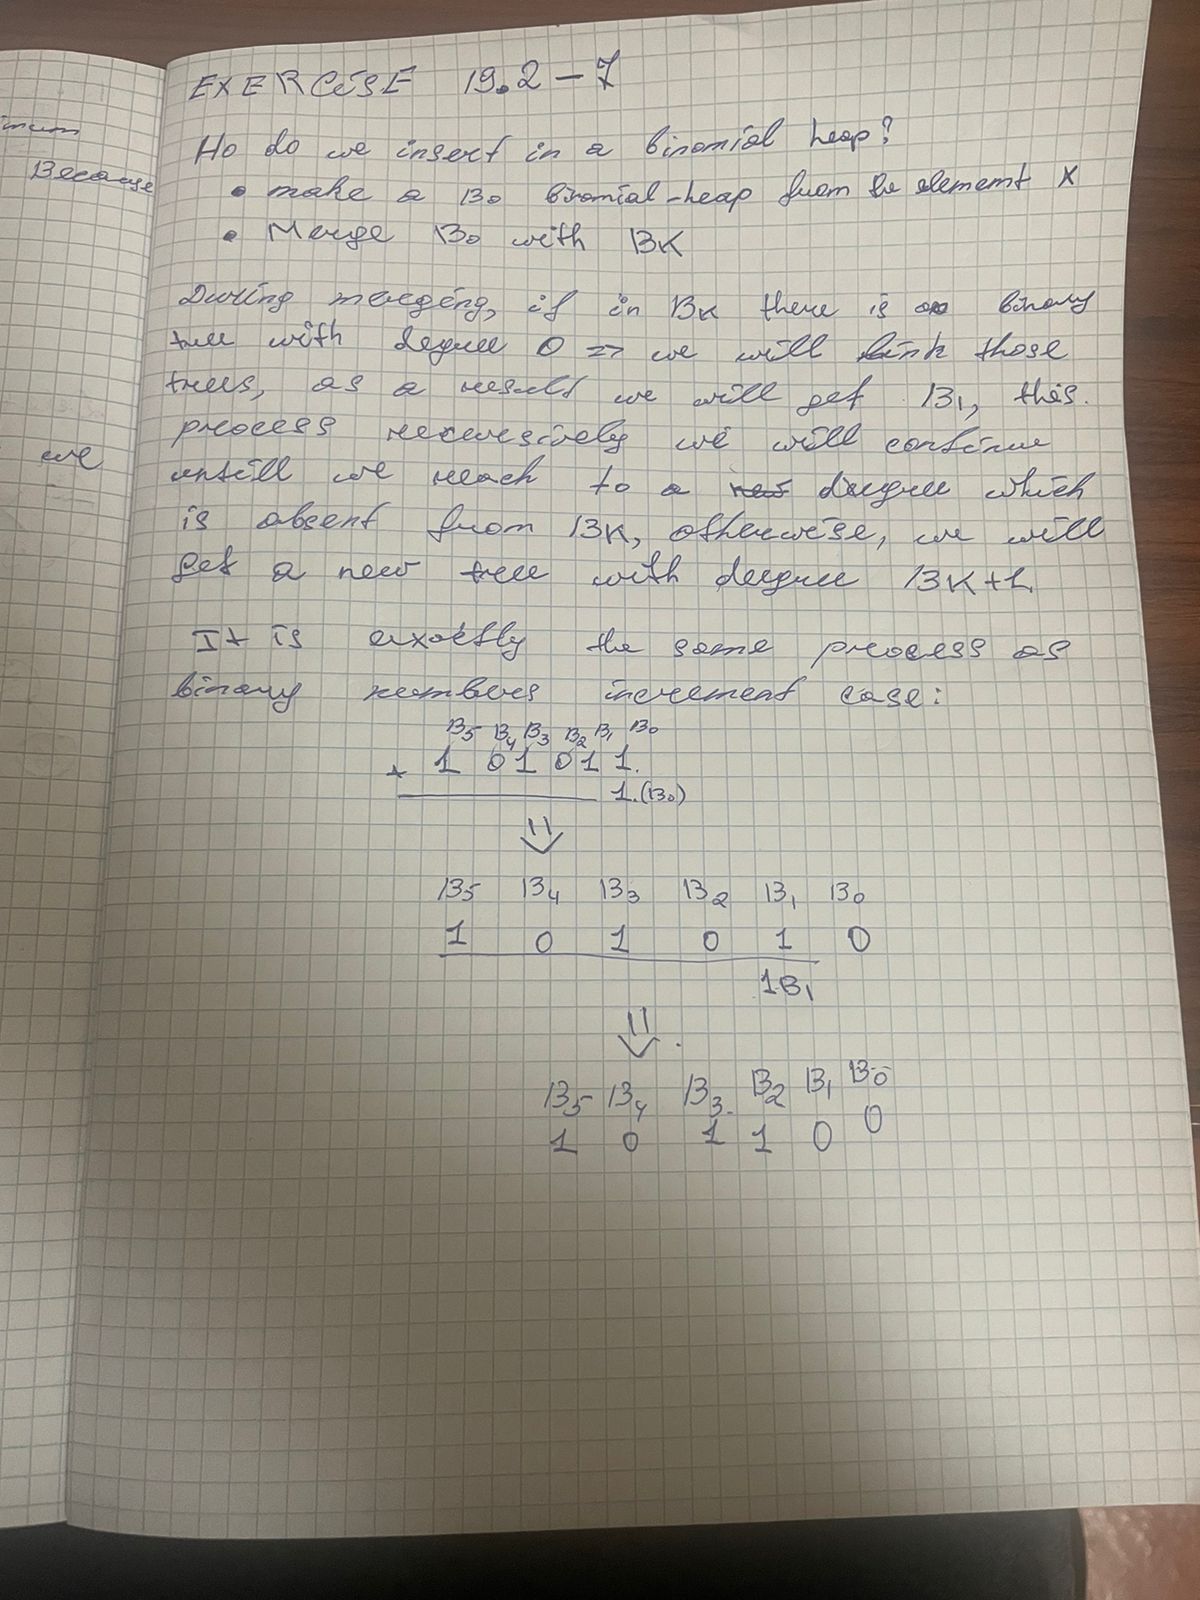 imum
Because
we
EXERCISE 19.2-7
Ho do we insert in a binomial heap?
• make a B0 binomial-heap from the element x
• Merge B0 with BK
During merging, if in BK there is a binary
tree with degree 0 => we will link those
trees, as a result we will get B1, this.
process recursively we will continue
untill we reach to a degree which
is absent from BK, otherwise, we will
get a new tree with degree BK+1.
It is exactly the same process as
binary numbers increment case:
B5 B4 B3 B2 B1 B0
+ 1 0 1 0 1 1.
1.(B0)
⇓
B5 B4 B3 B2 B1 B0
1 0 1 0 1 0
1B1
⇓.
B5 B4 B3. B2 B1 B0
1 0 1 1 0 0